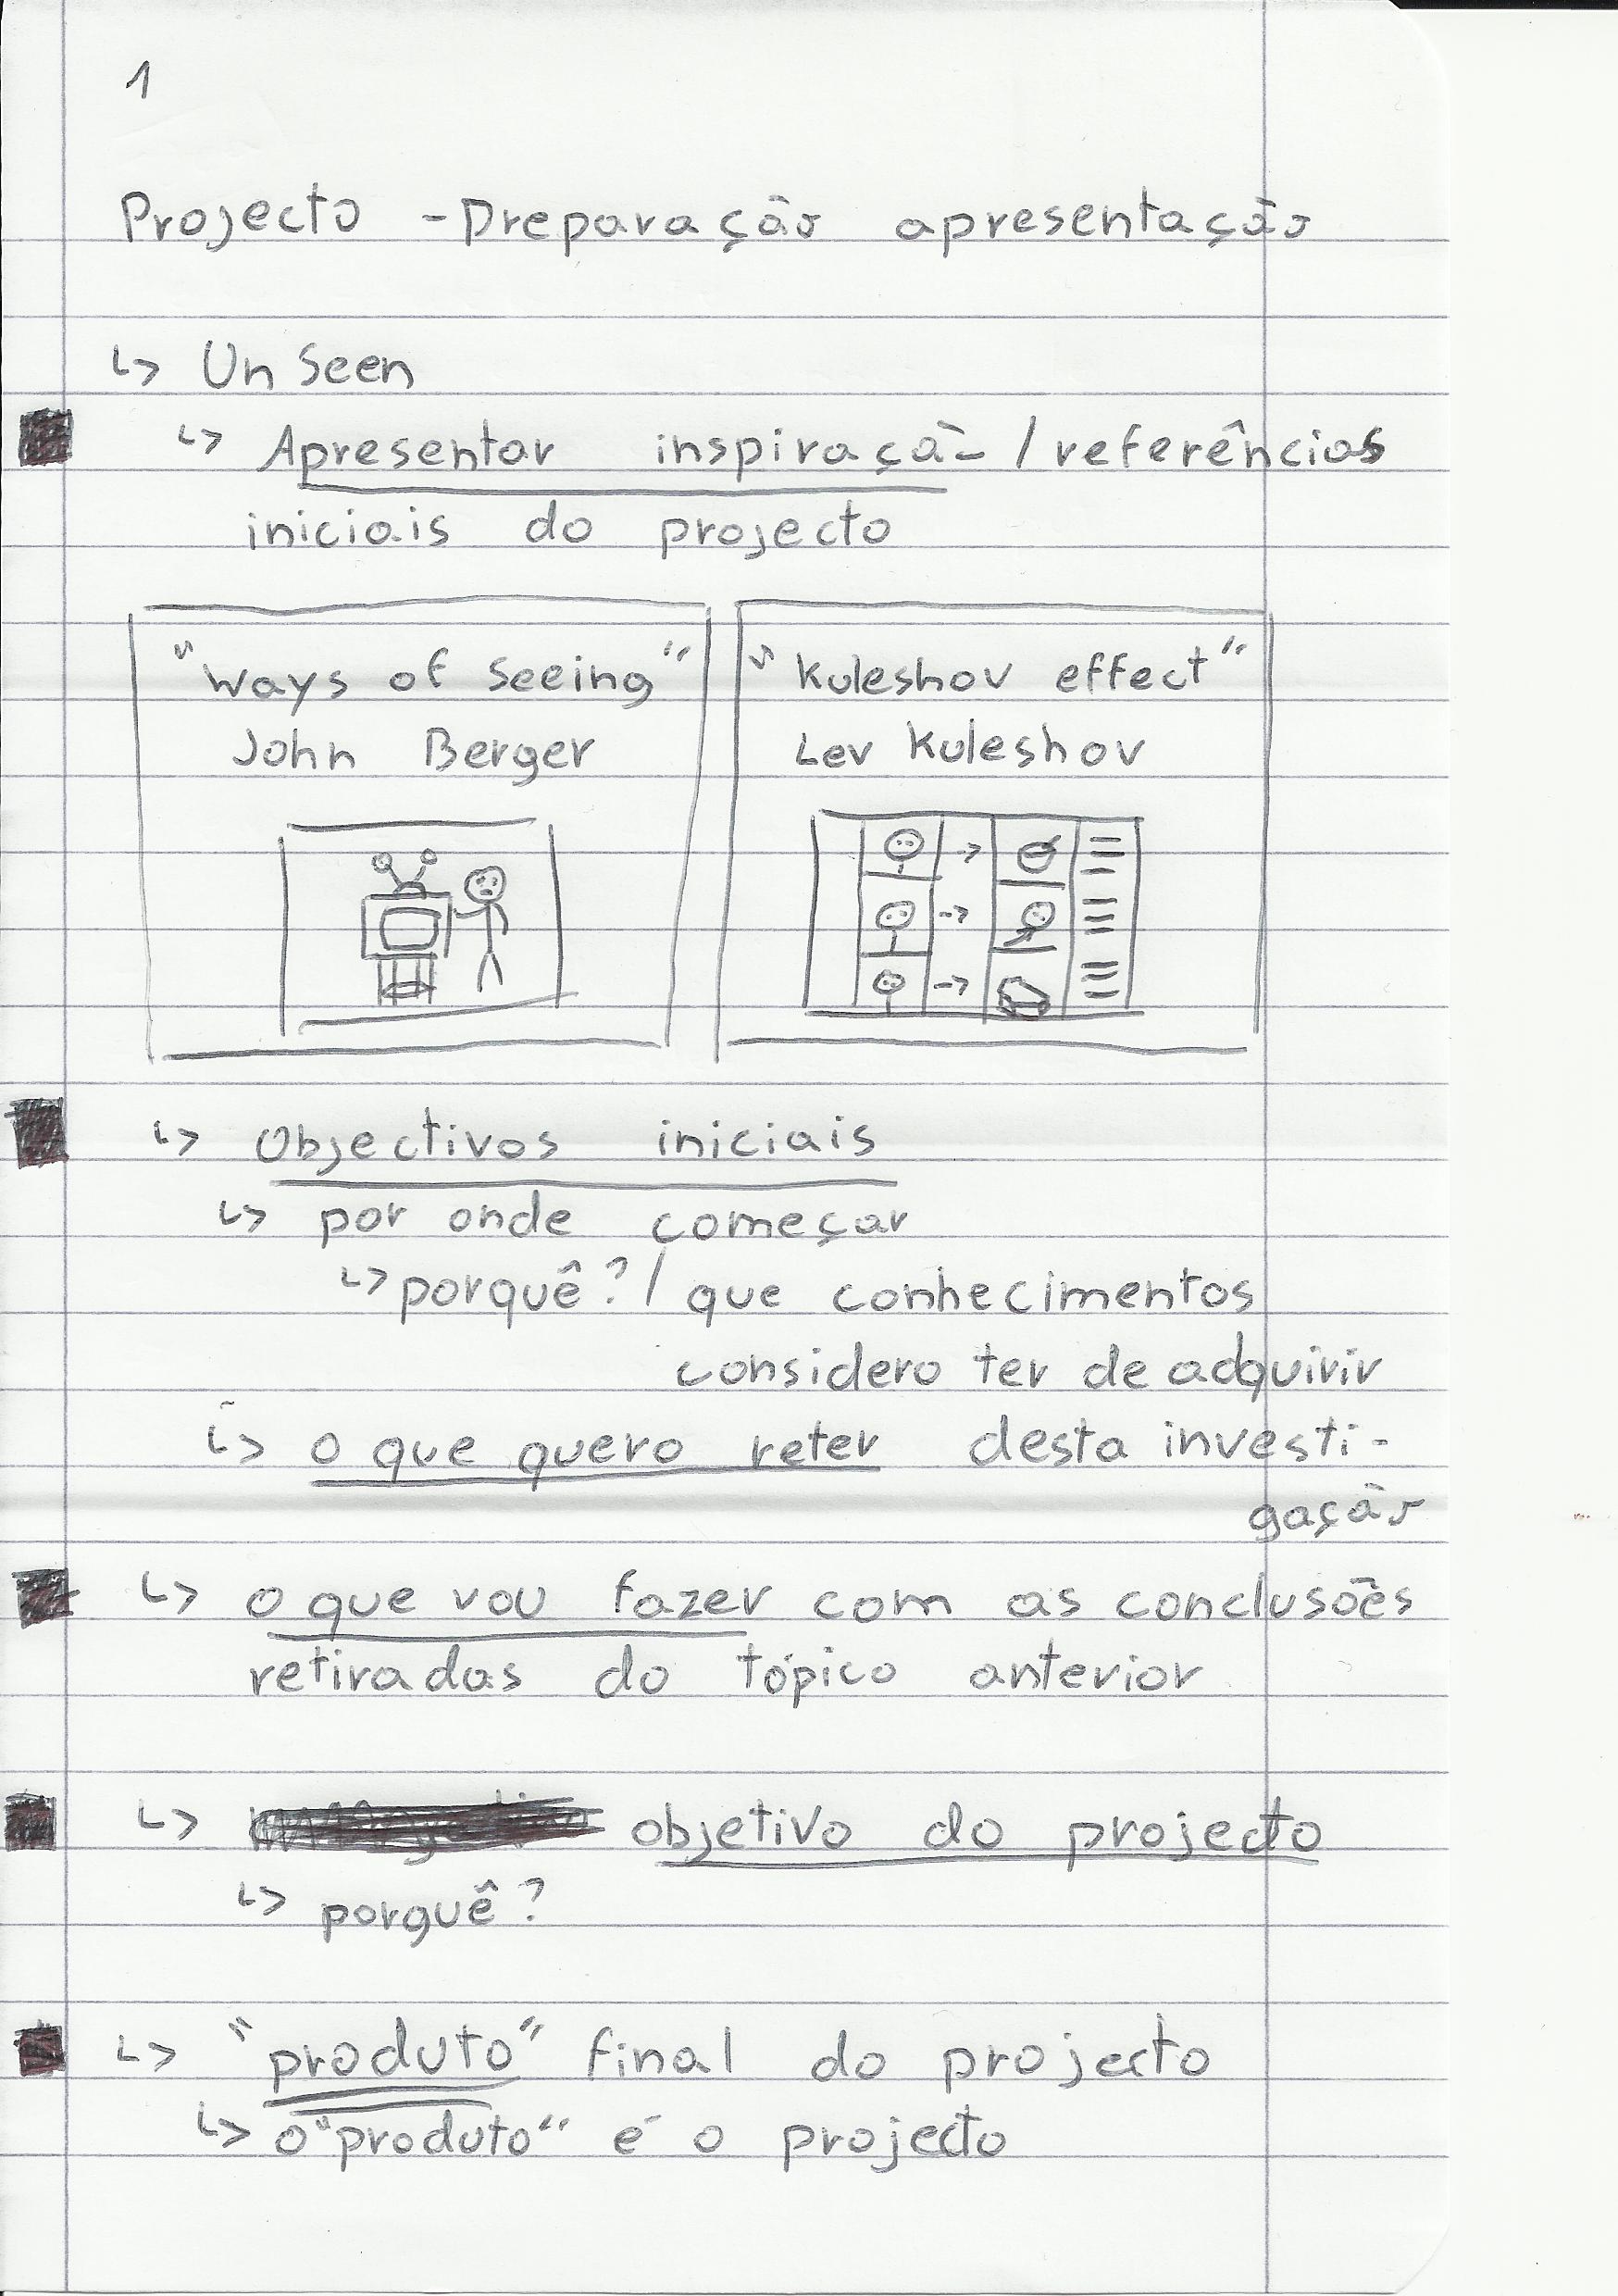 1
Projecto - Preparação apresentação
↳ Un Seen
↳ Apresentar inspiração / referências
iniciais do projecto
"Ways of Seeing"
John Berger
"Kuleshov effect"
Lev Kuleshov
↳ Objectivos iniciais
↳ por onde começar
↳ porquê? / que conhecimentos
considero ter de adquirir
↳ o que quero reter desta investi-
gação
↳ o que vou fazer com as conclusões
retiradas do tópico anterior
↳ objetivo do projecto
↳ porquê?
↳ "produto" final do projecto
↳ o "produto" é o projecto